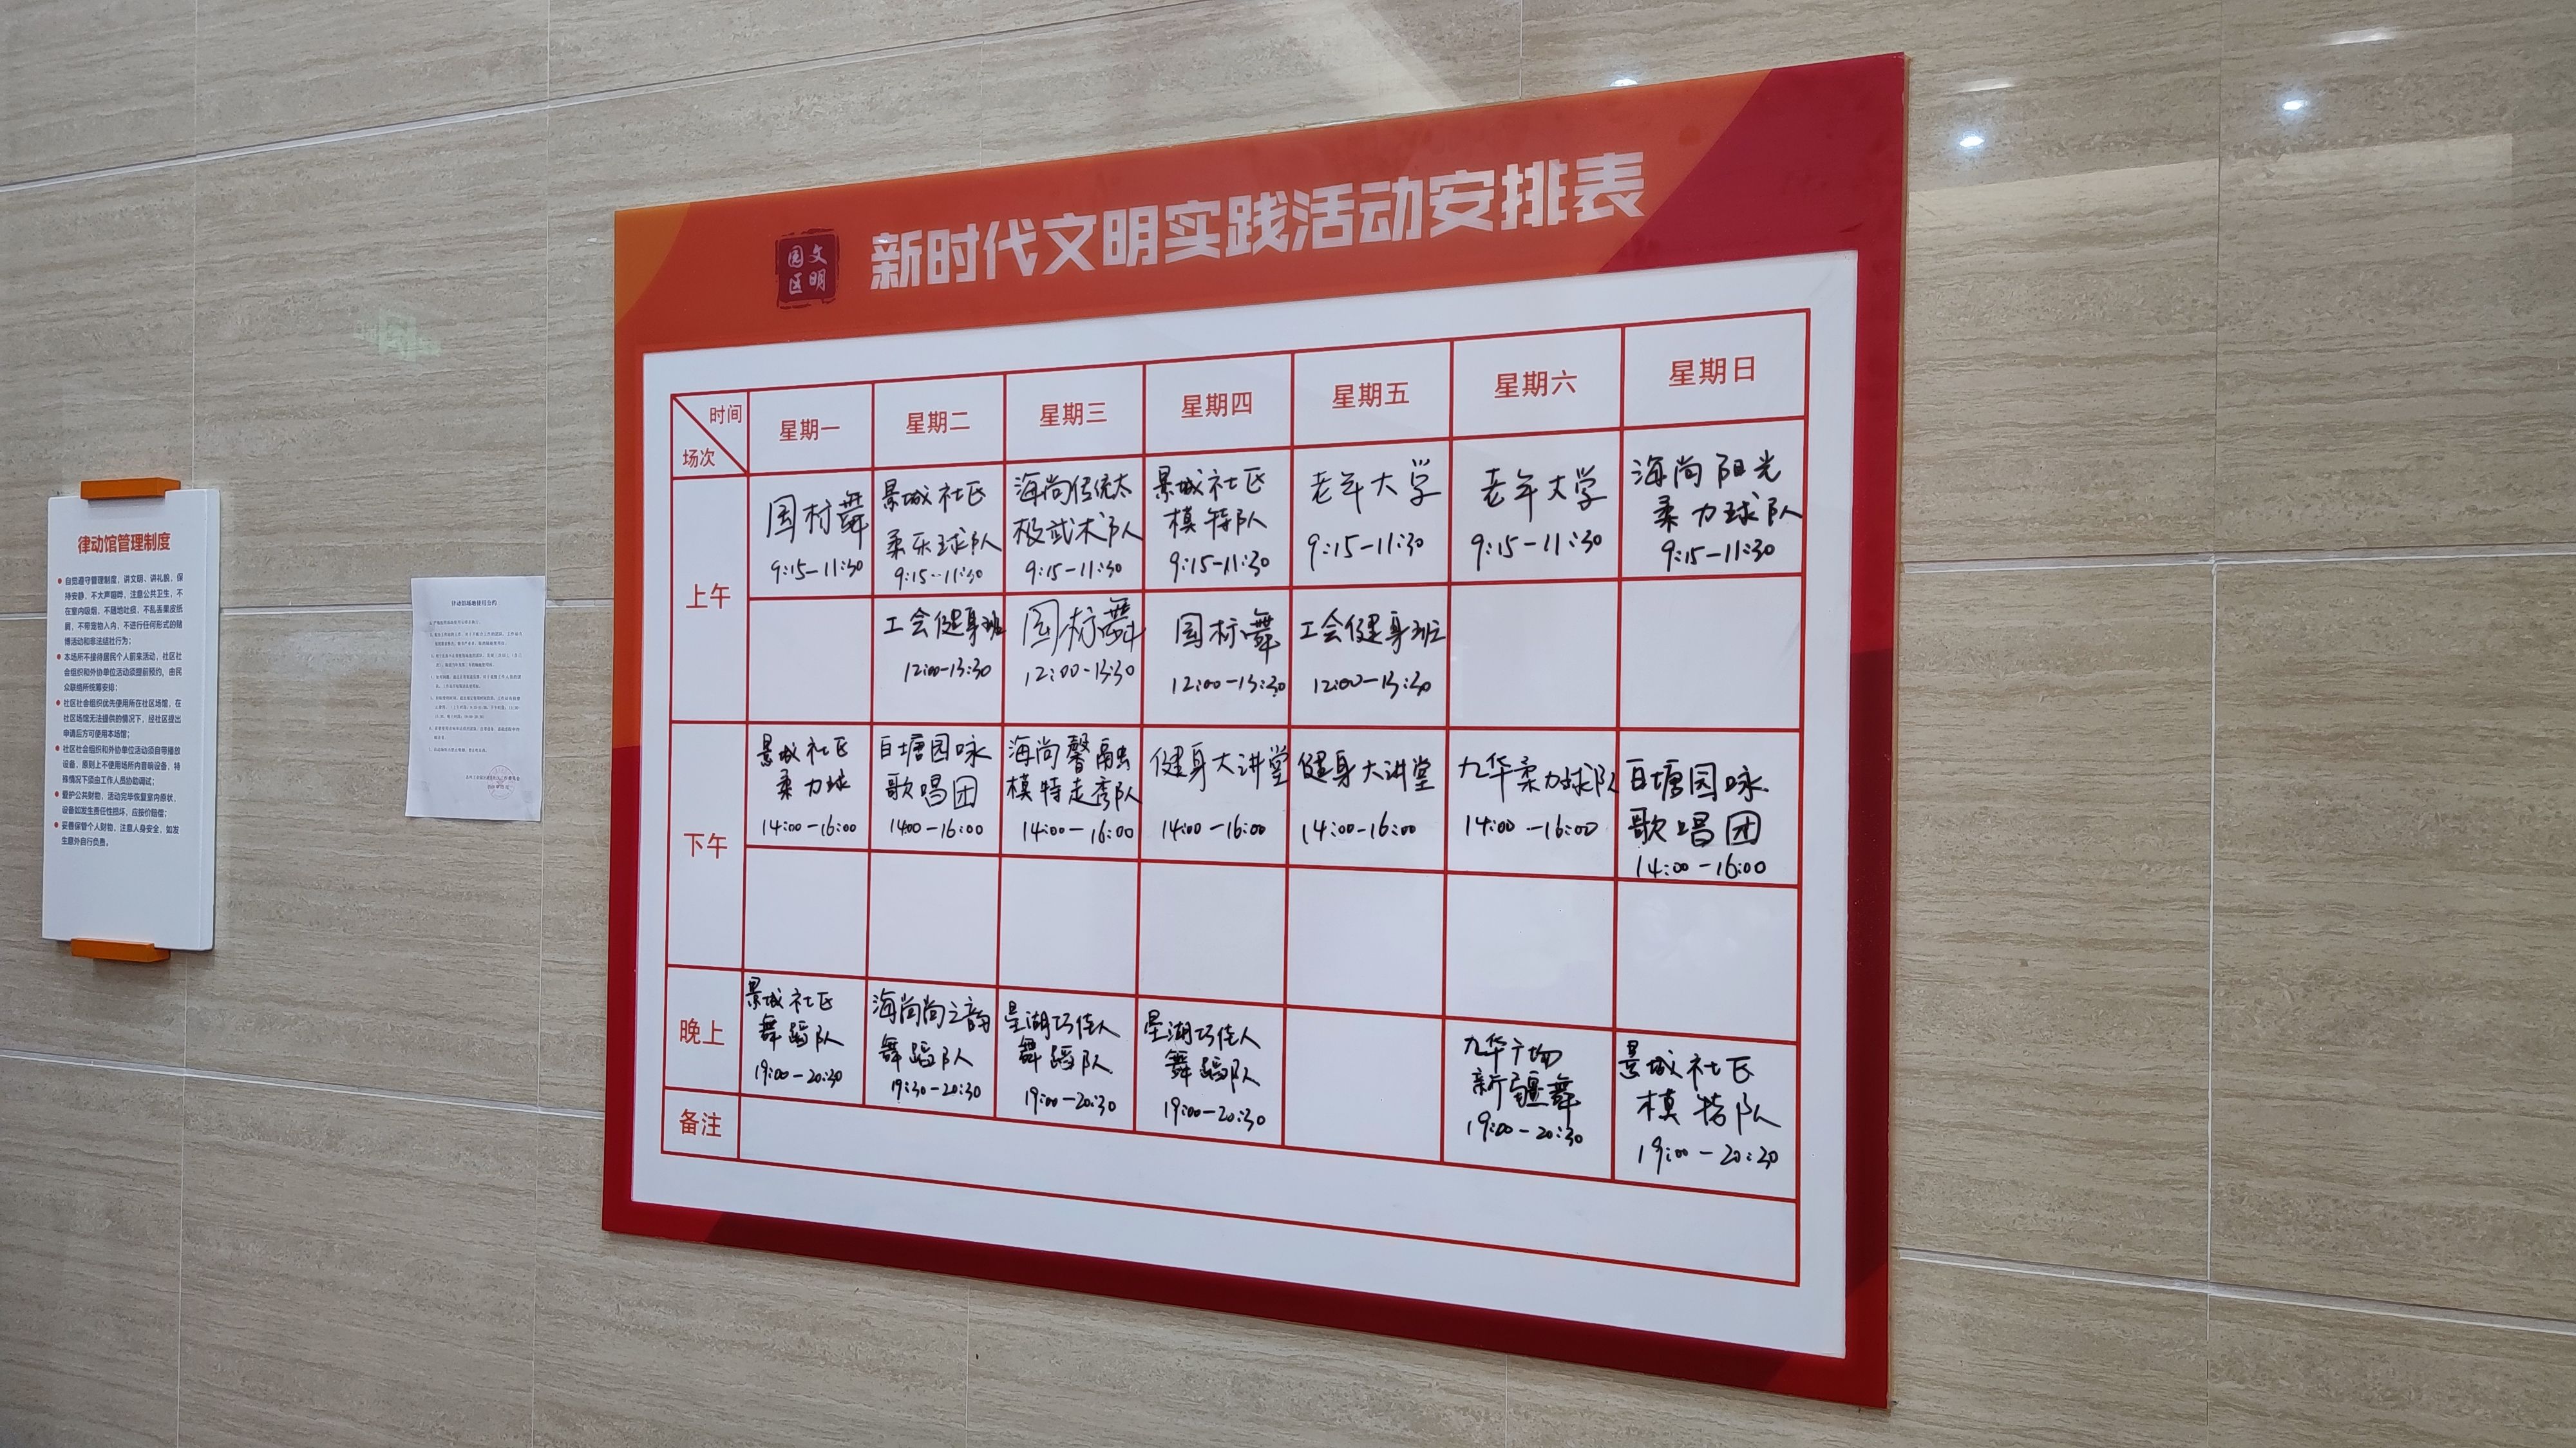 文明
园区
新时代文明实践活动安排表
时间
场次
星期一
星期二
星期三
星期四
星期五
星期六
星期日
上午
国村舞
9:15-11:30
景城社区
柔乐球队
9:15-11:30
海尚传统太
极武术队
9:15-11:30
景城社区
模特队
9:15-11:30
老年大学
9:15-11:30
老年大学
9:15-11:30
海尚阳光
柔力球队
9:15-11:30
工会健身班
12:00-13:30
国标舞
12:00-13:30
国标舞
12:00-13:30
工会健身班
12:00-13:30
下午
景城社区
柔力球
14:00-16:00
白塘园咏
歌唱团
14:00-16:00
海尚馨融
模特走秀队
14:00-16:00
健身大讲堂
14:00-16:00
健身大讲堂
14:00-16:00
九华柔力球队
14:00-16:00
白塘园咏
歌唱团
14:00-16:00
晚上
景城社区
舞蹈队
19:00-20:30
海尚尚之韵
舞蹈队
19:30-20:30
星湖巧佳人
舞蹈队
19:00-20:30
星湖巧佳人
舞蹈队
19:00-20:30
九华广场
新疆舞
19:00-20:30
景城社区
模特队
19:00-20:30
备注
律动馆管理制度
自觉遵守管理制度，讲文明、讲礼貌，保
持安静，不大声喧哗，注意公共卫生，不
在室内吸烟，不随地吐痰，不乱丢果皮纸
屑，不带宠物入内，不进行任何形式的赌
博活动和非法结社行为；
本场所不接待居民个人前来活动，社区社
会组织和外协单位活动须提前预约，由民
众联络所统筹安排；
社区社会组织优先使用所在社区场馆，在
社区场馆无法提供的情况下，经社区提出
申请后方可使用本场馆；
社区社会组织和外协单位活动须自带播放
设备，原则上不使用场所内音响设备，特
殊情况下须由工作人员协助调试；
爱护公共财物，活动完毕恢复室内原状，
设备如发生责任性损坏，应按价赔偿；
妥善保管个人财物，注意人身安全，如发
生意外自行负责。